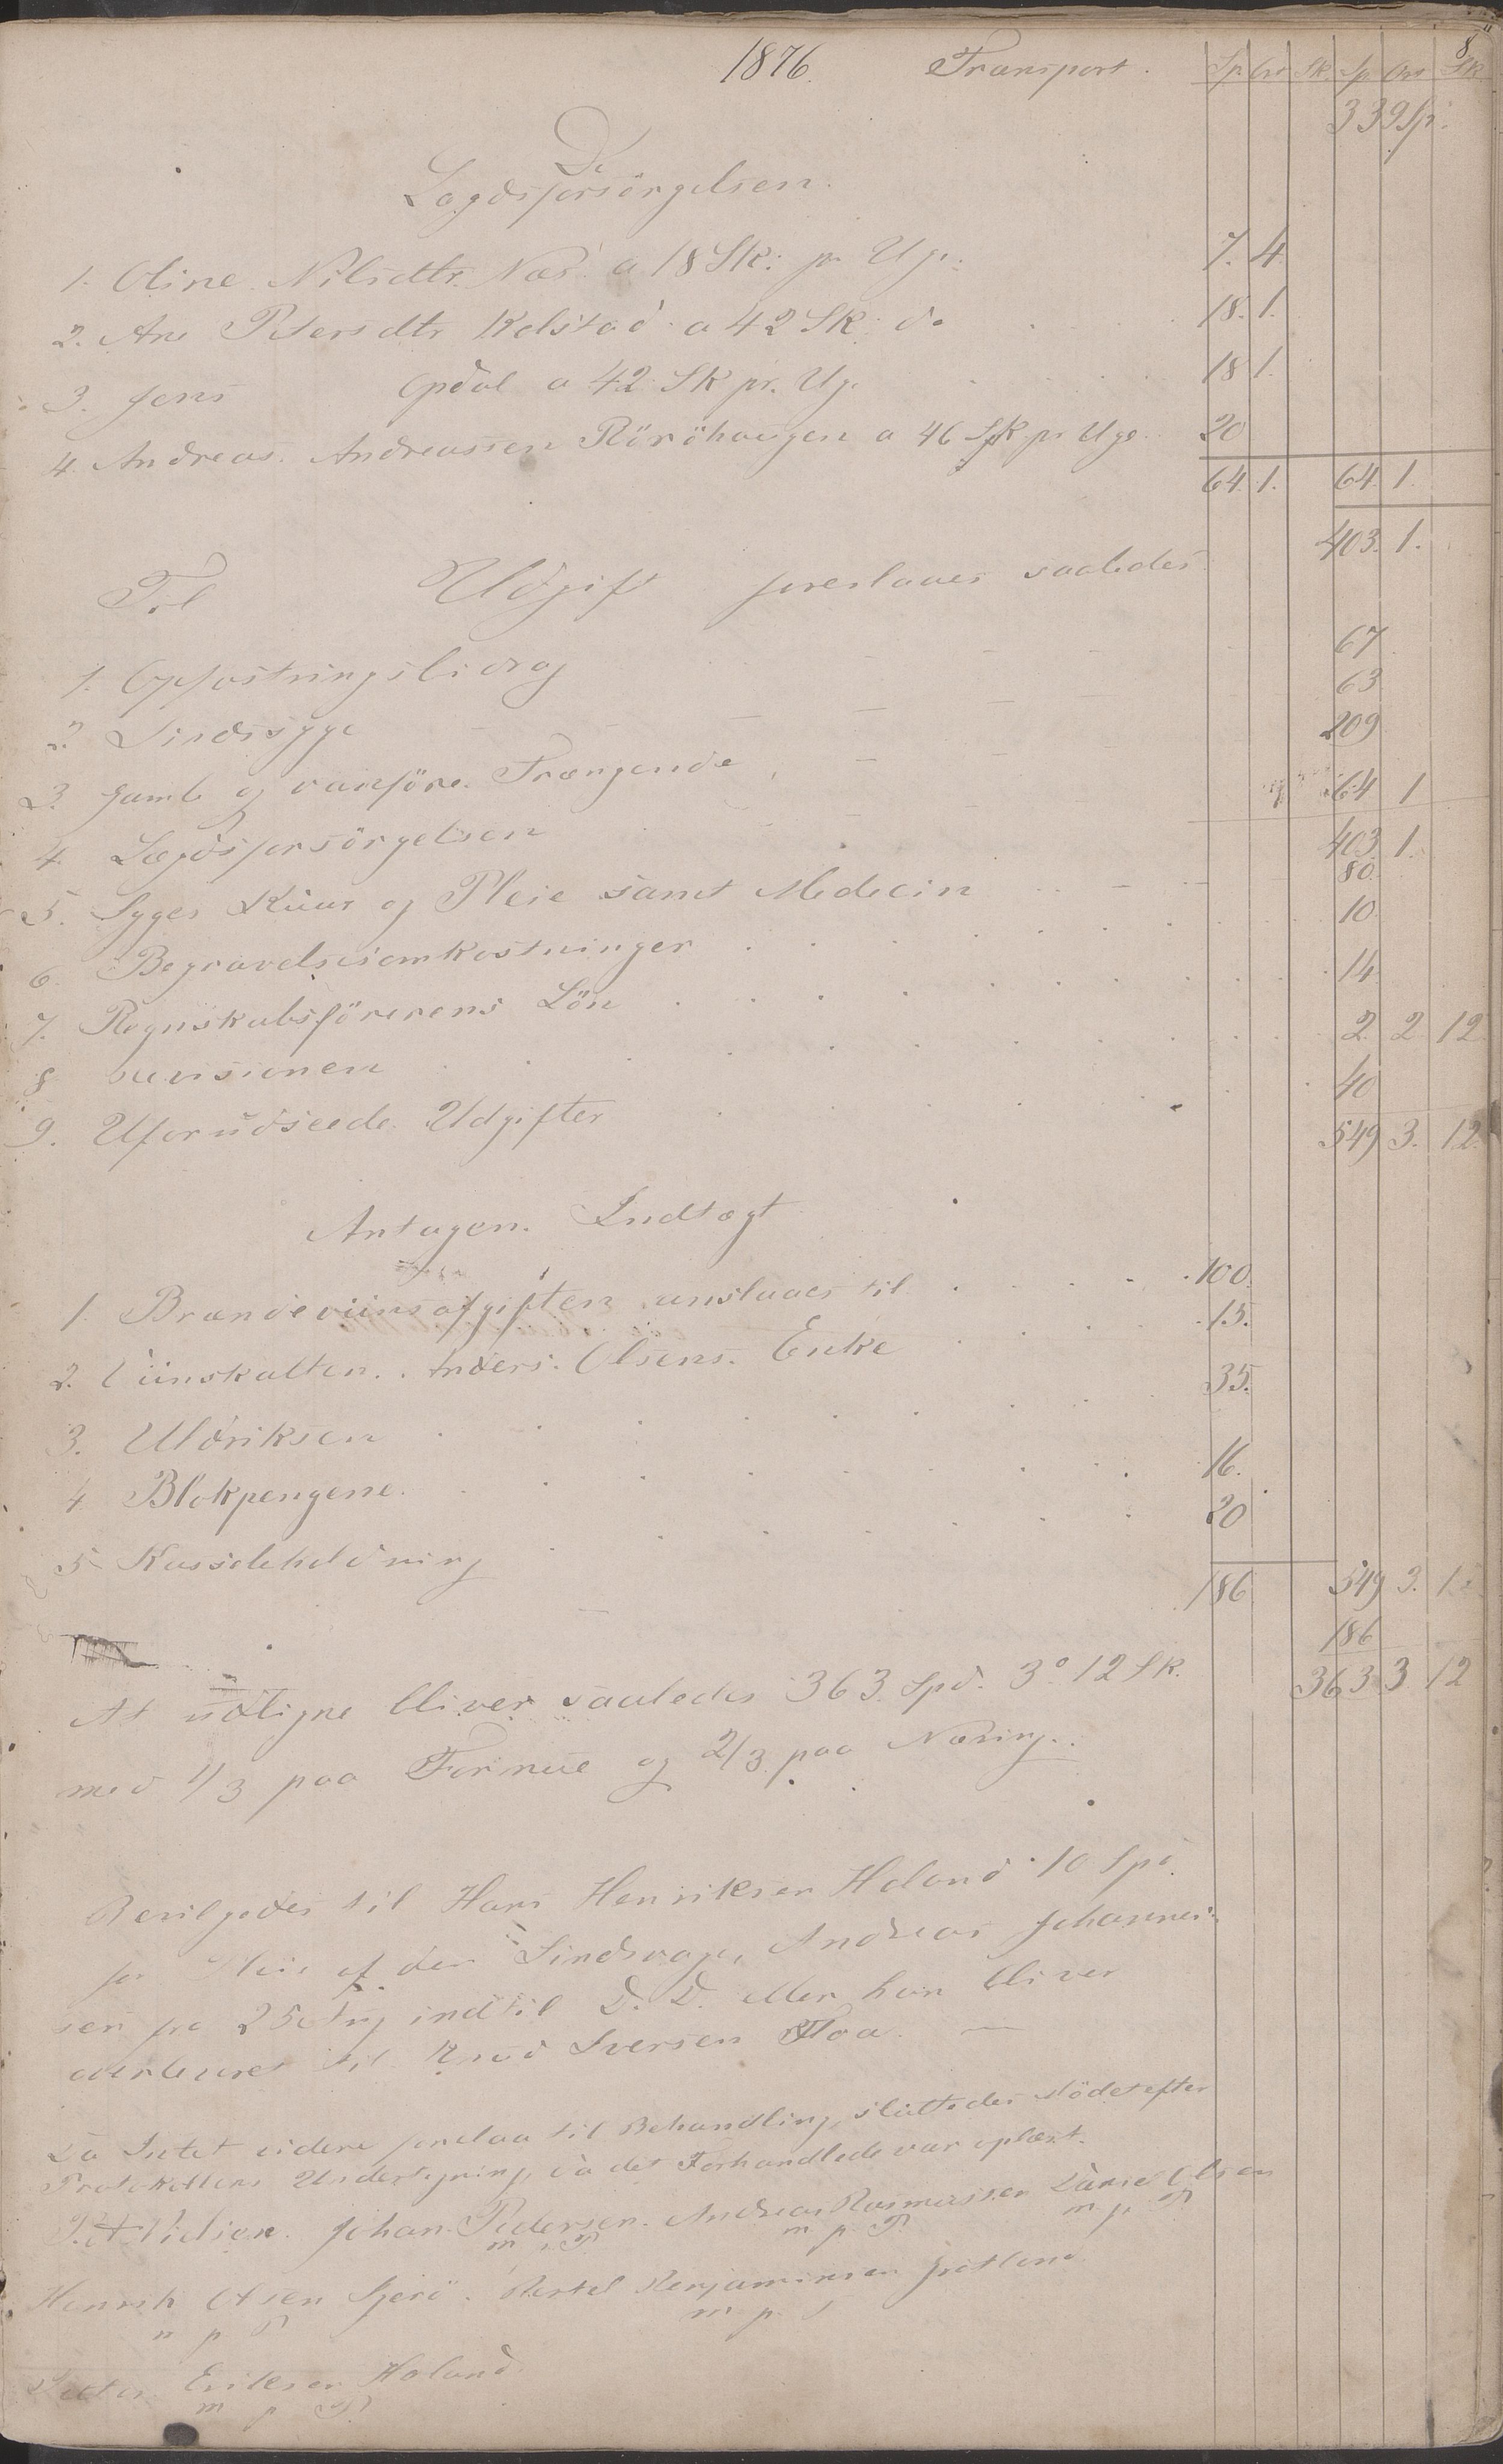 8
1876. Transport. Sp. Ort Sk. Sp Ort Sk.
339 Sp.
D.
Lægdsforsörgelsen.
1. Oline Nilsdtr. Næs. a 18 Sk. pr. Uge. 7. 4.
2. Ane Petersdtr Kolstad a 42 Sk. do 18. 1.
3. Jens Opdal a 42 Sk pr. Ug. 18 1.
4. Andreas Andreassen Röröhaugen a 46 Sk pr Uge. 20
64. 1. 64. 1.
403. 1.
Til Udgift foreslaaes saaledes
1. Opfostringsbidrag 67
2. Sindssyge 63
3. Gamle og vanföre Trængende 209
4. Lægdsforsörgelsen 64 1
403 1.
5. Syges Kuur og Pleie samt Medecin 80.
6. Begravelsesomkostninger 10
7. Regnskabsförerens Lön 14
8 Revisionen 2 2 12
9. Uforudseede Udgifter 40
549 3. 12.
Antagen Indtægt
1. Brændeviinsafgiften anslaaes til 100.
2. Viinskatten. Anders Olsens Enke 15.
3. Uldriksen 35.
4 Blokpengene. 16.
5 Kassebeholdning 20
186 549 3. 12
186
At udligne bliver saaledes 363 Spd. 3o 12 Sk. 363 3 12
med 1/3 paa Formue og 2/3 paa Næring.
Bevilgedes til Hans Henriksen Holand 10 Spd.
for Pleie af den Sindsvage, Andreas Johannes-
sen fra 25 Aug indtil D. D. eller han bliver
overleveret til Knud Iversen Floa.
Da Intet videre forelaa til Behandling, sluttedes Mödet efter
Protokollens Undertegning, da det Forhandlede var oplæst.
P. A. Nielsen. Johan Pedersen. Andreas Rasmussen Daniel Olsen
m p P m p P m p P
Henrik Olsen Sjerö. Bertel Benjaminsen Grötland
m p P m p P
Petter Eriksen Holand
m p P